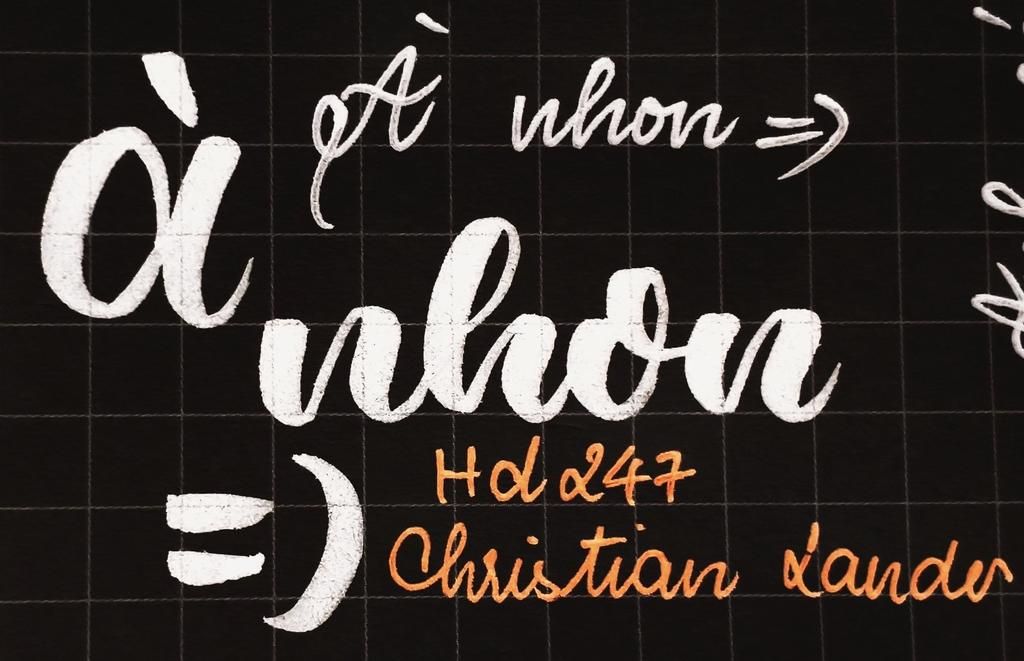 À nhon =)
à
nhon
=)
Hd 247
Christian Lander